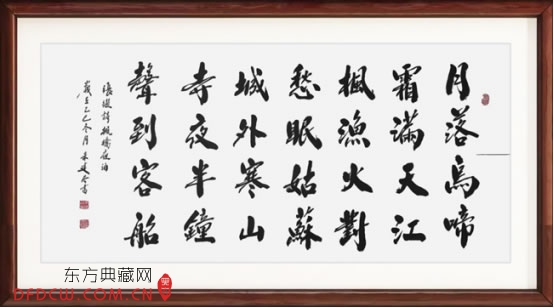 月落烏啼
霜滿天江
楓漁火對
愁眠姑蘇
城外寒山
寺夜半鐘
聲到客船
張繼詩楓橋夜泊
歲在乙巳冬月
东方典藏网
DFDCW.COM.CN